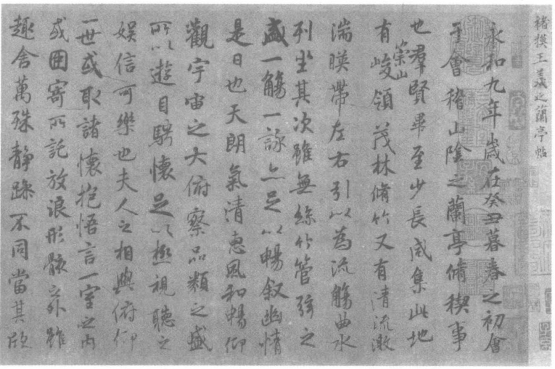 褚摸王羲之蘭亭帖
永和九年歲在癸丑暮春之初會
于會稽山陰之蘭亭脩稧事
也羣賢畢至少長咸集此地
有崇山峻領茂林脩竹又有清流激
湍暎帶左右引以為流觴曲水
列坐其次雖無絲竹管弦之
盛一觴一詠亦足以暢叙幽情
是日也天朗氣清惠風和暢仰
觀宇宙之大俯察品類之盛
所以遊目騁懷足以極視聽之
娛信可樂也夫人之相與俯仰
一世或取諸懷抱悟言一室之內
或因寄所託放浪形骸之外雖
趣舍萬殊靜躁不同當其欣